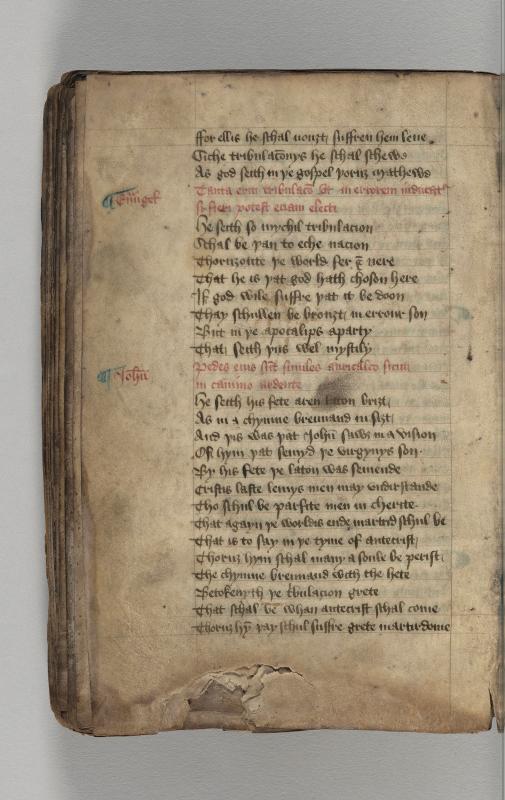 ffor ellis he schal nouzt suffren hem leue
Siche tribulaconys he schal schewe
As god seith in þe gospel þoruz Mathewe
Euangel
Tanta erit tribulaco vt in errorem inducantur
si fieri potest eciam electi
He seith so mychil tribulacion
Schal be þan to eche nacion
Thoruzoute þe world fer & nere
That he is þat god hath chosen here
If god wile suffre þat it be doon
Thay schullen be brouzt in errour son
But in þe apocalips aparty
That seith þus wel mystily
John
Pedes eius sunt similes auricalco sicut
in camino ardente
He seith his fete aren laton brizt
As in a chymne brennand in sizt
And þis was þat John sawe in a vision
Of hym þat semyd þe virgynys son
By his fete þe laton was semende
Cristis laste lemys men may vndirstande
Tho schul be parfite men in cherite
That agayn þe worldis ende martrid schul be
That is to say in þe tyme of antecrist
Thoruz hym schal many a soule be perist
The chymne brennand with the hete
Betokenyth þe tribulacion grete
That schal be whan antecrist schal come
Thoruz hym þay schul suffre grete martirdome